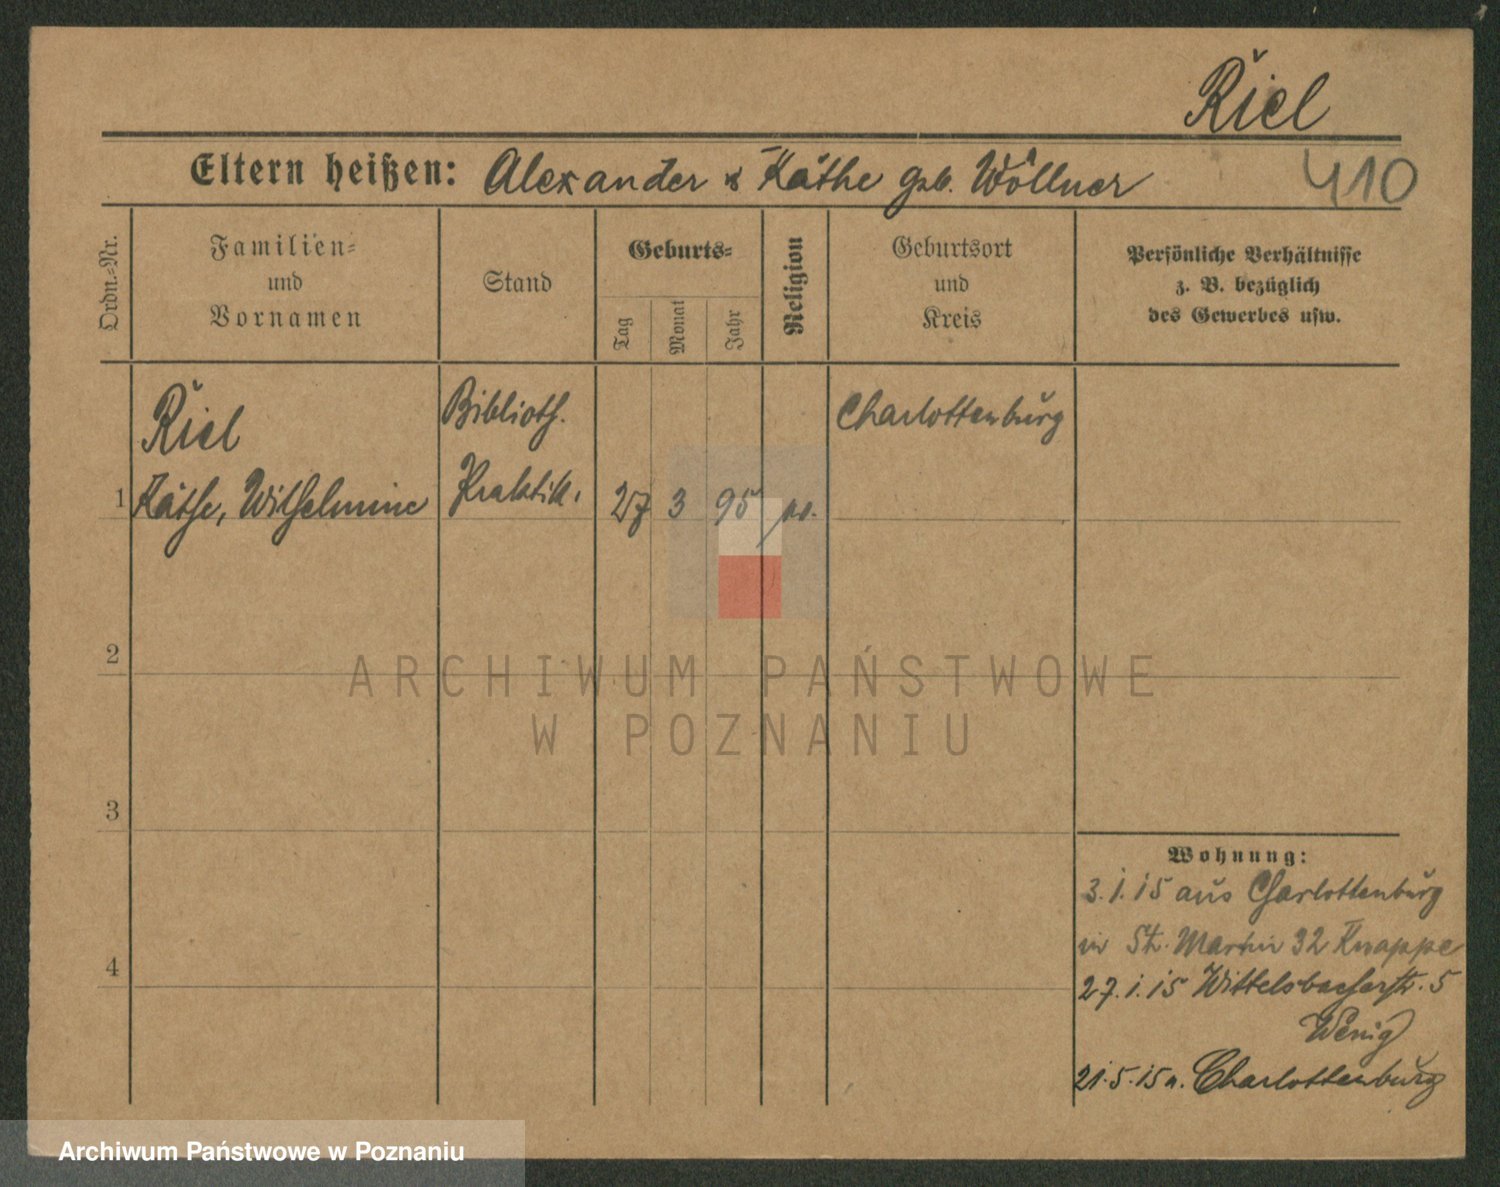 Riel
Eltern heißen: Alexander & Käthe geb. Wöllner
410
Ordn.-Nr.
Familien-
und
Vornamen
Stand
Geburts-
Tag
Monat
Jahr
Religion
Geburtsort
und
Kreis
Persönliche Verhältnisse
z. B. bezüglich
des Gewerbes usw.
Riel
Biblioth.
Charlottenburg
1 Käthe, Wilhelmine Praktik. 27 3 95
2
3
4
Wohnung:
3.1.15 aus Charlottenburg
in St. Martin 32 Knappe
27.1.15 Wittelsbacherstr. 5
Wenig
21.5.15 n. Charlottenburg
ARCHIWUM PAŃSTWOWE
W POZNANIU
Archiwum Państwowe w Poznaniu